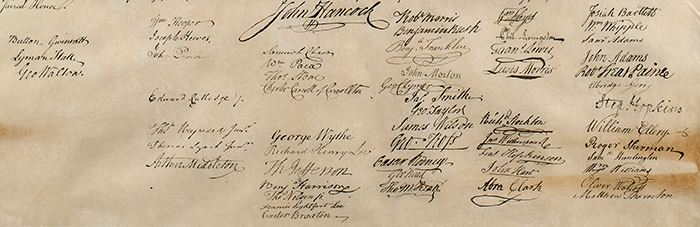 sacred Honor.
Button Gwinnett
Lyman Hall
Geo Walton.
Wm Hooper
Joseph Hewes,
John Penn
Edward Rutledge /.
Thos Heyward Junr.
Thomas Lynch Junr.
Arthur Middleton
John Hancock
Samuel Chase
Wm Paca
Thos Stone
Charles Carroll of Carrollton
George Wythe
Richard Henry Lee
Th Jefferson
Benj Harrison
Thos Nelson jr.
Francis Lightfoot Lee
Carter Braxton
Robt Morris
Benjamin Rush
Benj. Franklin
John Morton
Geo Clymer
Jas. Smith
Geo. Taylor
James Wilson
Geo. Ross
Caesar Rodney
Geo Read
Tho M:Kean
Wm Floyd
Phil. Livingston
Frans. Lewis
Lewis Morris
Richd. Stockton
Jno Witherspoon
Fras. Hopkinson
John Hart
Abra Clark
Josiah Bartlett
Wm. Whipple
Saml Adams
John Adams
Robt Treat Paine
Elbridge Gerry
Step. Hopkins
William Ellery
Roger Sherman
Saml Huntington
Wm. Williams
Oliver Wolcott
Matthew Thornton